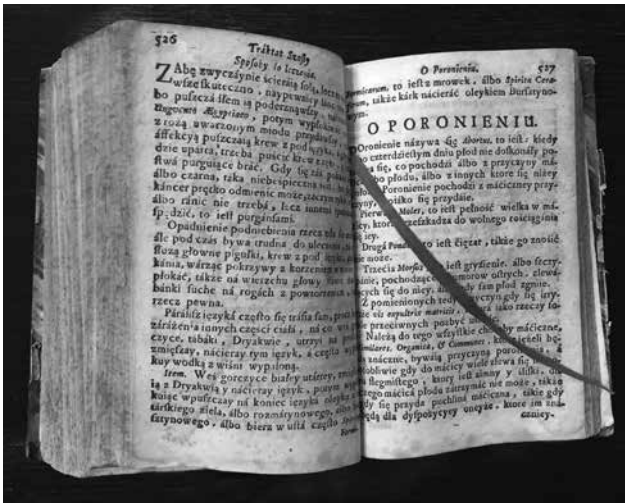 526
Tráktat Szosty
Sposoby do leczenia.
ZAbę zwyczáynie ścieráią solą, lecz
wsze skuteczno, naypewniey
bo puszczá
Unguento Ægyptiaco, potym
z rożą uwarzonym miodu
áffekcyą puszczáią krew z pod języká,
dzie upárta, trzebá puścić krew z ręki
stwá purguiące bráć. Gdy się zás
álbo czarna, táka niebespieczna iest
káncer prętko odmienic może, záczym
álbo ránic nie trzebá, lecz innemi
spędzić, to iest purgánsámi.
Opádnienie podniebienia rzecz
ále pod czás bywa trudna do uleczenia,
służą głowne pigułki, krew z pod języká,
kánia, wárząc pokrzywy z korzeniem
płokáć, tákże ná wierzchu głowy
bánki suche ná rogách z powtorzeniem,
rzecz pewna.
Páráliż języká często się tráfia sam, prócz
záráżenia innych części ciáłá, ná co
czyce, tábáki, Dryakwie, utrzyi ná
zmięszay, nácieray tym język, á często
kuy wodką z wiśni wypiłoną.
Item. Weś gorczyce białey utárzey, zmięszay
ią z Dryakwią y nácieray język, potym
kuiąc wpuszczay ná koniec języká oleyku
társkiego ziela, álbo rozmárynowego, álbo
sztynowego, álbo bierz w ustá często
527
O Poronieniu.
Formicarum, to iest z mrowek, álbo Spiritu Cera-
sorum, tákże kárk nácieráć oleykiem Bursztyno-
wym.
O PORONIENIU.
POronienie názywa się Abortus, to iest: kiedy
po czterdziestym dniu płod nie doskonáły po-
się, co pochodzi álbo z przyczyny má-
álbo płodu, álbo z innych ktore się niżey
Poronienie pochodzi z máciczney przy-
czyny, się przydáie.
Pierwsza Moles, to iest pełność wielka w má-
cicy, ktora przeszkadza do wolnego rościągnia
się icy.
Drugá to iest ciężar, tákże go znosić
nie może.
Trzecia Morsus, to iest gryzienie, álbo szczy-
panie, pochodzące z humorow ostrych, zlewá-
iących się do niey, ále gdy sam płod zgnie.
Z pomienionych tedy przyczyn gdy się irry-
tuie vis expultrix matricis, ktora iáko rzeczy so-
bie przeciwnych pozbyć
Należą do tego wszystkie choroby máciczne,
Similares, Organicæ, & Communes, ktore ieżeli bę-
dą znáczne, bywáią przyczyną poronienia, á
osobliwie gdy do mácicy wiele zlewa się
flegmistego, ktory iest zimny y śliski, dla
czego mácicá płodu zátrzymáć nie może, tákże
gdy się przyda puchlina máciczna, tákie gdy
będą dla dyspozycyi oncyże, ktore im zná-
cznicy.